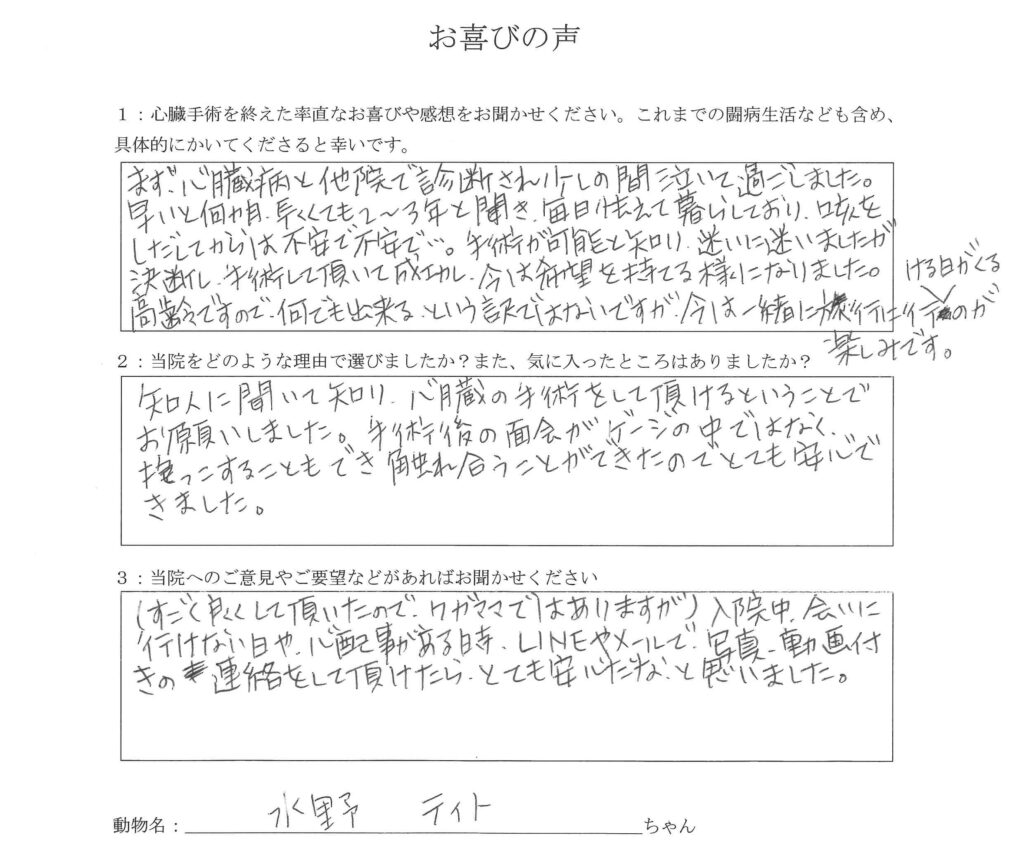 お喜びの声
１：心臓手術を終えた率直なお喜びや感想をお聞かせください。これまでの闘病生活なども含め、
具体的にかいてくださると幸いです。
まず、心臓病と他院で診断され少しの間泣いて過ごしました。
早いと何カ月、長くても2～3年と聞き、毎日怯えて暮らしており、咳を
しだしてからは不安で不安で…。手術が可能と知り、迷いに迷いましたが
決断し、手術して頂いて成功し、今は希望を持てる様になりました。
高齢ですので、何でも出来る、という訳ではないですが、今は一緒に旅行に行ける日がくるのが
楽しみです。
２：当院をどのような理由で選びましたか？また、気に入ったところはありましたか？
知人に聞いて知り、心臓の手術をして頂けるということで
お願いしました。手術後の面会がゲージの中ではなく、
抱っこすることもでき触れ合うことができたのでとても安心で
きました。
３：当院へのご意見やご要望などがあればお聞かせください
(すごく良くして頂いたので、ワガママではありますが)入院中、会いに
行けない日や、心配事がある時、LINEやメールで、写真、動画付
きの連絡をして頂けたら、とても安心だな、と思いました。
動物名：水野 ティト ちゃん